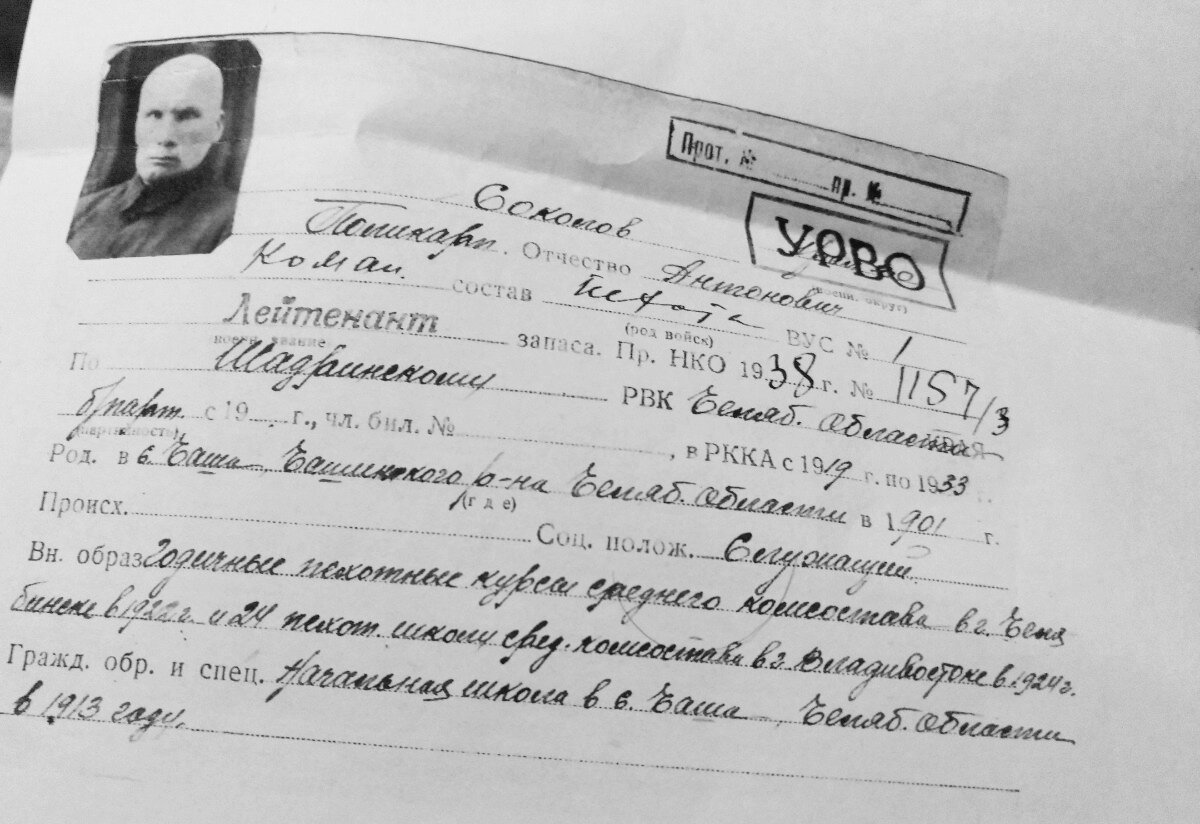 Прот. № пр. №
Соколов
УРВО
(воен. округ)
Поликарп. Отчество Антонович
Коман. состав пехота ВУС № 1
(род войск)
Лейтенант запаса. Пр. НКО 1938 г. № 1157/3
военн. звание
По Шадринскому РВК Челяб. Области
б/парт. с 19 г., чл. бил. № , в РККА с 1919 г. по 1933 г.
(партийность)
Род. в с. Чаша, Чашинского р-на Челяб. Области в 1901 г.
(где)
Происх. Соц. полож. Служащий.
Вн. образ Годичные пехотные курсы среднего комсостава в г. Челя
бинске в 1922 г. и 24 пехот. школу сред. комсостава в г. Владивостоке в 1924 г.
Гражд. обр. и спец. Начальная школа в с. Чаша, Челяб. Области
в 1913 году.